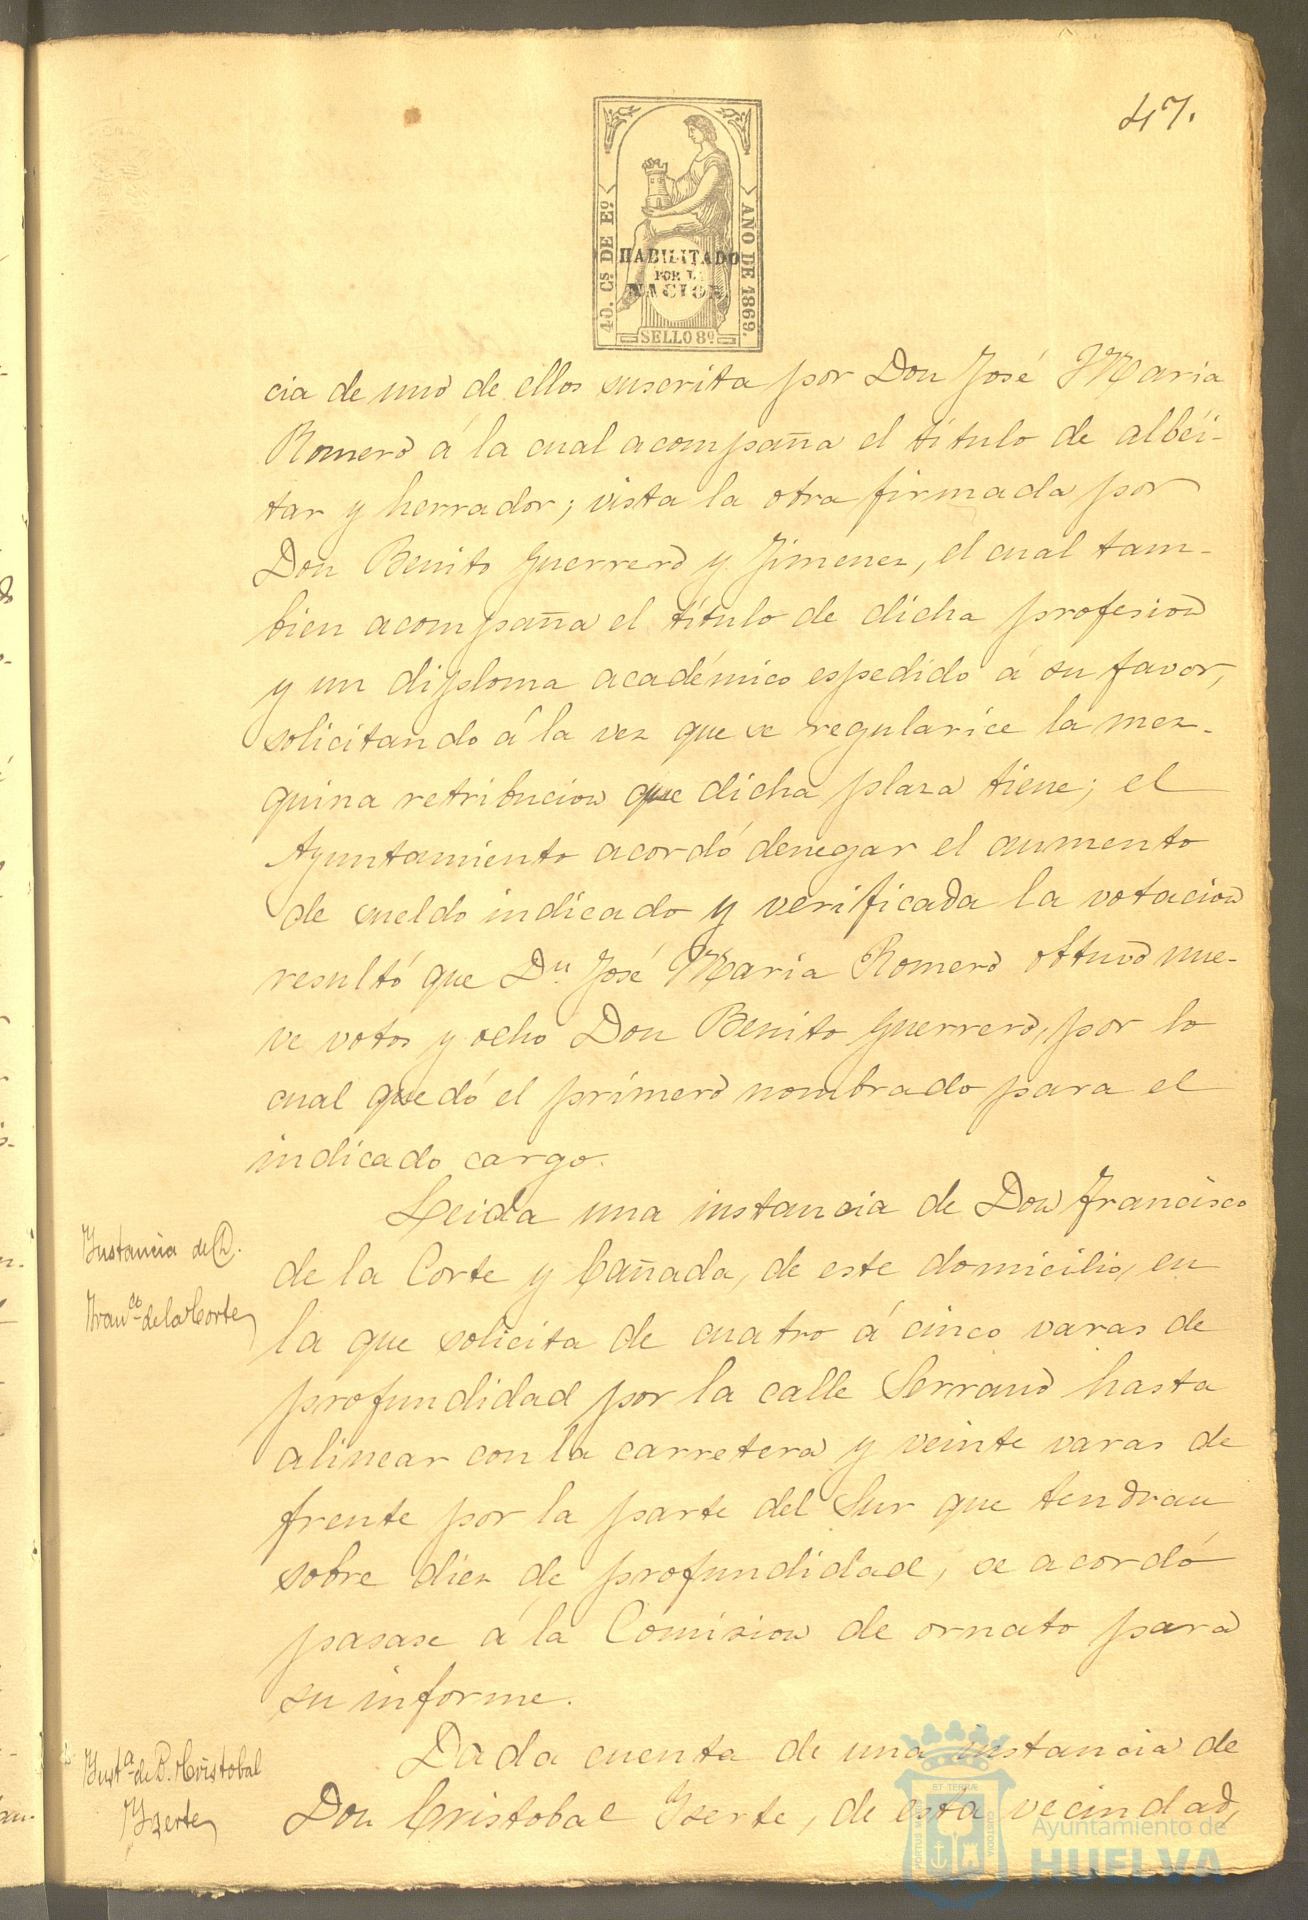 47.
40. Cs DE Eo
AÑO DE 1869.
HABILITADO
POR LA
NACION
SELLO 8º
cia de uno de ellos suscrita por Don José Maria
Romero á la cual acompaña el título de albéi-
tar y herrador; vista la otra firmada por
Don Benito Guerrero y Jimenez, el cual tam-
bien acompaña el título de dicha profesion
y un diploma académico espedido á su favor,
solicitando á la vez que se regularice la mez-
quina retribucion que dicha plaza tiene; el
Ayuntamiento acordó denegar el aumento
de sueldo indicado y verificada la votacion
resultó que Dn. José Maria Romero obtuvo nue-
ve votos y ocho Don Benito Guerrero, por lo
cual quedó el primero nombrado para el
indicado cargo.
Leida una instancia de Don Francisco
Instancia de D.
Franco de la Corte
de la Corte y Cañada, de este domicilio, en
la que solicita de cuatro á cinco varas de
profundidad por la calle Serrano hasta
alinear con la carretera y veinte varas de
frente por la parte del Sur que tendran
sobre diez de profundidad, se acordó
pasase á la Comision de ornato para
su informe.
Dada cuenta de una instancia de
Insta de D. Cristobal
Yzerte
Don Cristobal Yzerte, de esta vecindad,
ET TERRÆ
PORTUS M
CUSTODIA
Ayuntamiento de
HUELVA